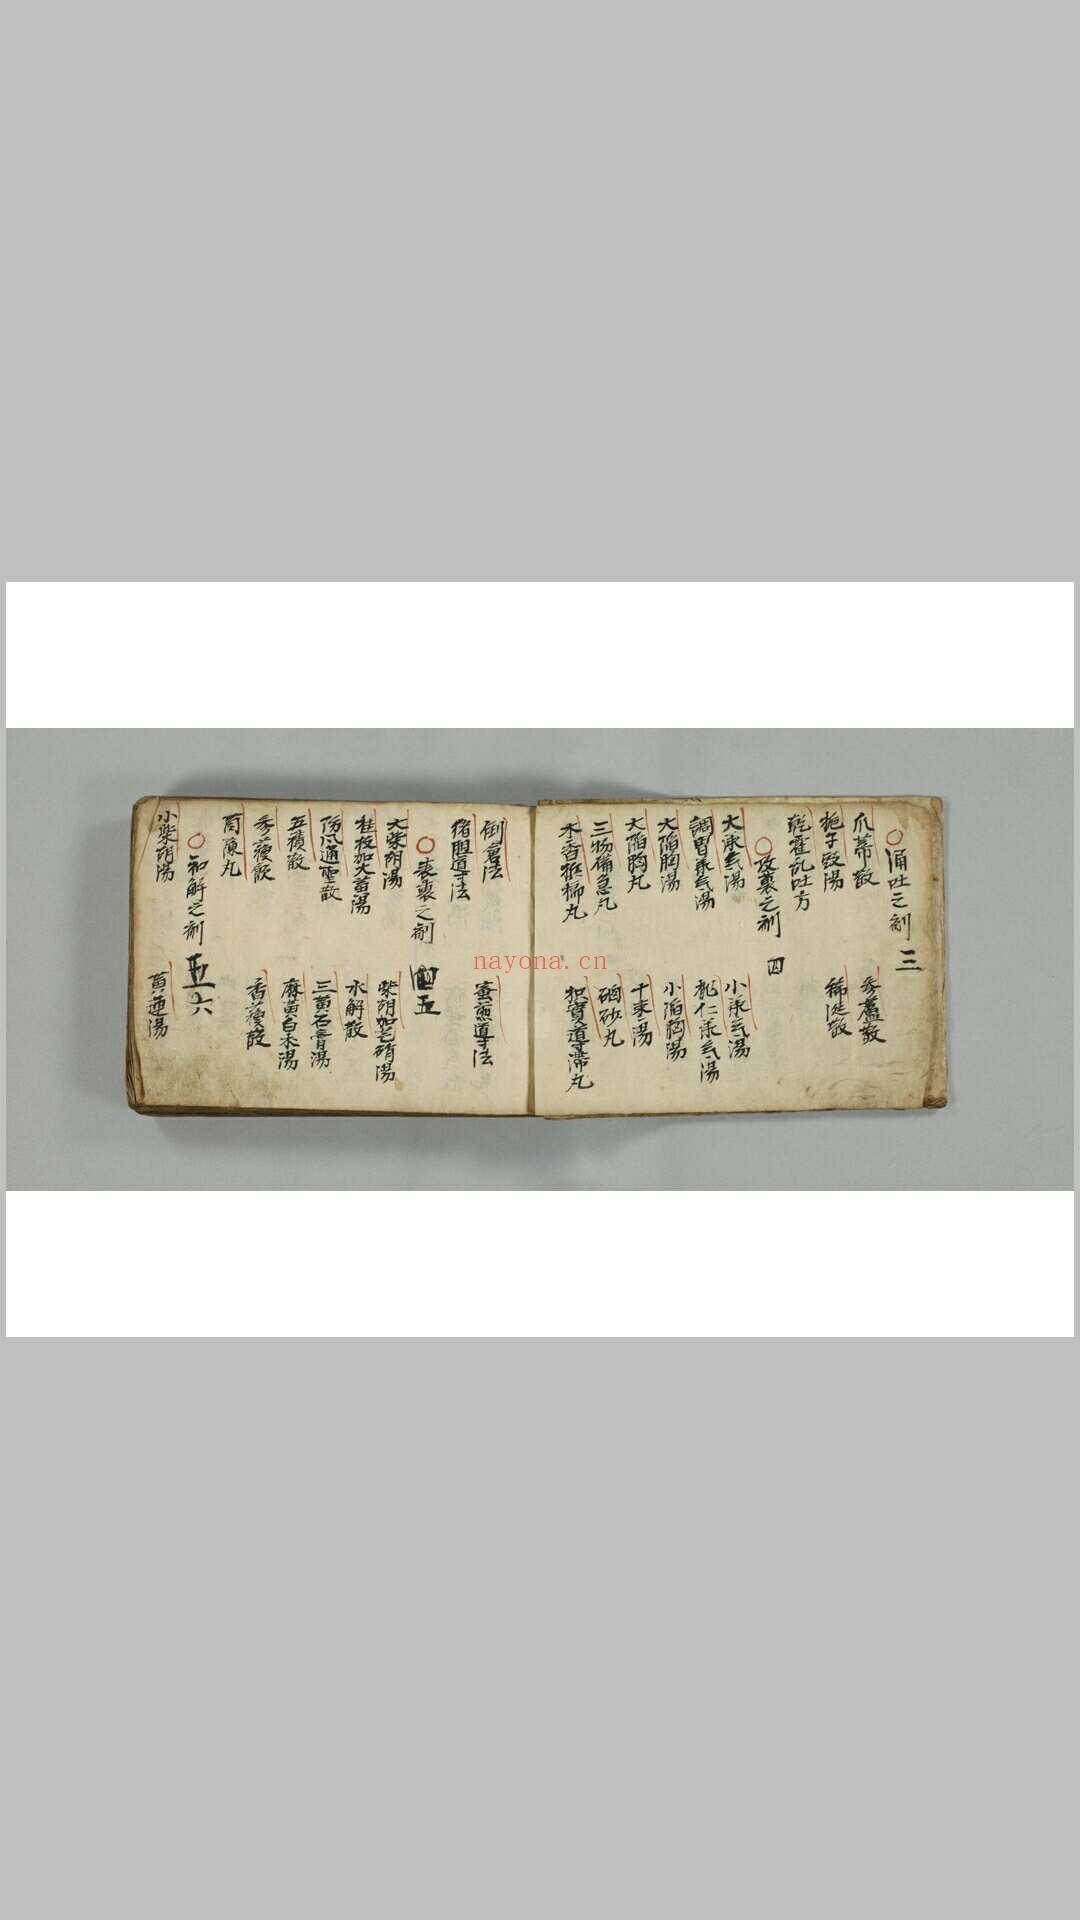 涌吐之剤 三
瓜蒂散 参蘆散
梔子豉湯 稀涎散
乾霍乱吐方
攻裏之剤 四
大承気湯 小承気湯
調胃承気湯 桃仁承気湯
大陥胸湯 小陥胸湯
大陥胸丸 十棗湯
三物備急丸 硇砂丸
木香梹榔丸 枳實導滞丸
倒倉法 蜜煎導法
猪胆導法
表裏之剤 四五
大柴胡湯 柴胡加芒硝湯
桂枝加大黄湯 水解散
防風通聖散 三黄石膏湯
五積散 麻黄白朮湯
参蘓飲 香薷散
茵陳丸
和解之剤 五六
小柴胡湯 黄連湯
nayona.cn